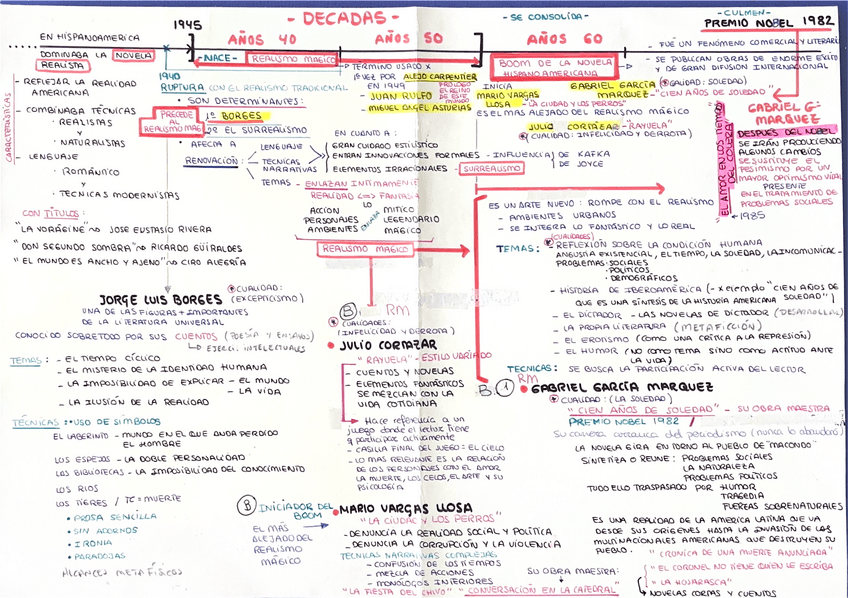 - DECADAS -
1945
EN HISPANOAMERICA
AÑOS 40
AÑOS 50
- SE CONSOLIDA -
AÑOS 60
- CULMEN -
PREMIO NOBEL 1982
DOMINABA LA NOVELA
REALISTA
- NACE - REALISMO MAGICO
BOOM DE LA NOVELA
HISPANOAMERICANA
- FUÉ UN FENÓMENO COMERCIAL Y LITERARI
- SE PUBLICAN OBRAS DE ENORME EXITO
Y DE GRAN DIFUSION INTERNACIONAL
CARACTERÍSTICAS
- REFLEJAR LA REALIDAD
AMERICANA
- COMBINABA TÉCNICAS
· REALISTAS
Y
· NATURALISTAS
- LENGUAJE
· ROMÁNTICO
Y
· TECNICAS MODERNISTAS
CON TÍTULOS:
"LA VORÁGINE" JOSE EUSTASIO RIVERA
"DON SEGUNDO SOMBRA" RICARDO GÜIRALDES
"EL MUNDO ES ANCHO Y AJENO" CIRO ALEGRÍA
1940
RUPTURA CON EL REALISMO TRADICIONAL
• SON DETERMINANTES:
PRECEDE AL
REALISMO MAG
1º BORGES
2º EL SURREALISMO
• AFECTA A
RENOVACIÓN:
LENGUAJE
TECNICAS
NARRATIVAS
TEMAS
EN CUANTO A:
GRAN CUIDADO ESTILÍSTICO
ENTRAN INNOVACIONES FORMALES - INFLUENCIA DE KAFKA
DE JOYCE
ELEMENTOS IRRACIONALES - SURREALISMO
- ENLAZAN INTIMAMENTE
REALIDAD <=> FANTASÍA
LO
ACCION
PERSONAJES
AMBIENTES
ENCAJA
MITICO
LEGENDARIO
MAGICO
REALISMO MAGICO
- TÉRMINO USADO X
1ª VEZ POR ALEJO CARPENTIER
EN 1949
PRÓLOGO
EL REINO
DE ESTE
MUNDO
- JUAN RULFO
- MIGUEL ANGEL ASTURIAS
INICIA
MARIO VARGAS
LLOSA - "LA CIUDAD Y LOS PERROS"
ES EL MAS ALEJADO DEL REALISMO MÁGICO
GABRIEL GARCÍA
MARQUEZ -
(CUALIDAD: SOLEDAD)
"CIEN AÑOS DE SOLEDAD"
JULIO CORTAZAR - "RAYUELA"
(CUALIDAD: INFELICIDAD Y DERROTA)
"EL AMOR EN LOS TIEMPOS
DEL COLERA"
1985
GABRIEL G-
MARQUEZ
DESPUÉS DEL NOBEL
SE IRÁN PRODUCIENDO
ALGUNOS CAMBIOS
SE SUSTITUYE EL
PESIMISMO POR UN
MAYOR OPTIMISMO VITAL
PRESENTE
EN EL TRATAMIENTO DE
PROBLEMAS SOCIALES
ES UN ARTE NUEVO: ROMPE CON EL REALISMO
- AMBIENTES URBANOS
- SE INTEGRA LO FANTÁSTICO Y LO REAL
(CUALIDADES)
TEMAS: - REFLEXIÓN SOBRE LA CONDICIÓN HUMANA
ANGUSTIA EXISTENCIAL, EL TIEMPO, LA SOLEDAD, LA INCOMUNICAC-
- PROBLEMAS SOCIALES
· POLITICOS
· DEMOGRÁFICOS
- HISTORIA DE IBEROAMÉRICA (- x ejemplo "CIEN AÑOS DE
QUE ES UNA SÍNTESIS DE LA HISTORIA AMERICANA SOLEDAD")
- EL DICTADOR - LAS NOVELAS DE DICTADOR (DESARROLLA)
- LA PROPIA LITERATURA (METAFICCIÓN)
- EL EROTISMO (COMO UNA CRÍTICA A LA REPRESIÓN)
- EL HUMOR (NO COMO TEMA SINO COMO ACTITUD ANTE
LA VIDA)
TECNICAS: - SE BUSCA LA PARTICIPACIÓN ACTIVA DEL LECTOR
JORGE LUIS BORGES
CUALIDAD:
(EXCEPTICISMO)
UNA DE LAS FIGURAS + IMPORTANTES
DE LA LITERATURA UNIVERSAL
CONOCIDO SOBRETODO POR SUS CUENTOS (POESÍA Y ENSAYOS)
EJERCI. INTELECTUALES
TEMAS: - EL TIEMPO CÍCLICO
- EL MISTERIO DE LA IDENTIDAD HUMANA
- LA IMPOSIBILIDAD DE EXPLICAR - EL MUNDO
- LA VIDA
- LA ILUSIÓN DE LA REALIDAD
TÉCNICAS: • USO DE SÍMBOLOS
EL LABERINTO - MUNDO EN EL QUE ANDA PERDIDO
EL HOMBRE
LOS ESPEJOS - LA DOBLE PERSONALIDAD
LAS BIBLIOTECAS - LA IMPOSIBILIDAD DEL CONOCIMIENTO
LOS RIOS
LOS TIGRES / TC = MUERTE
• PROSA SENCILLA
• SIN ADORNOS
• IRONIA
• PARADOJAS
ALCANCES METAFÍSICOS
B. RM
CUALIDADES:
(INFELICIDAD Y DERROTA)
• JULIO CORTAZAR
"RAYUELA" - ESTILO VARIADO
- CUENTOS Y NOVELAS
- ELEMENTOS FANTÁSTICOS
SE MEZCLAN CON LA
VIDA COTIDIANA
Hace referencia a un
juego donde el lector tiene
q participar activamente
- CASILLA FINAL DEL JUEGO: EL CIELO
- LO MAS RELEVANTE ES LA RELACIÓN
DE LOS PERSONAJES CON EL AMOR
LA MUERTE, LOS CELOS, EL ARTE Y SU
PSICOLOGÍA
B INICIADOR DEL
BOOM
EL MÁS
ALEJADO DEL
REALISMO
MÁGICO
• MARIO VARGAS LLOSA
"LA CIUDAD Y LOS PERROS"
- DENUNCIA LA REALIDAD SOCIAL Y POLÍTICA
- DENUNCIA LA CORRUPCIÓN Y LA VIOLENCIA
TECNICAS NARRATIVAS COMPLEJAS
- CONFUSIÓN DE LOS TIEMPOS
- MEZCLA DE ACCIONES
- MONOLOGOS INTERIORES
SU OBRA MAESTRA:
"LA FIESTA DEL CHIVO" "CONVERSACIÓN EN LA CATEDRAL"
B. 1 RM
• GABRIEL GARCÍA MARQUEZ
CUALIDAD: (LA SOLEDAD)
"CIEN AÑOS DE SOLEDAD" - SU OBRA MAESTRA
PREMIO NOBEL 1982
Su carrera arranca del periodismo (nunca lo abandonó)
LA NOVELA GIRA EN TORNO AL PUEBLO DE "MACONDO"
SINTETIZA O REUNE: PROBLEMAS SOCIALES
LA NATURALEZA
PROBLEMAS POLÍTICOS
TODO ELLO TRASPASADO POR HUMOR
TRAGEDIA
FUERZAS SOBRENATURALES
ES UNA REALIDAD DE LA AMERICA LATINA QUE VA
DESDE SUS ORÍGENES HASTA LA INVASIÓN DE LAS
MULTINACIONALES AMERICANAS QUE DESTRUYEN SU
PUEBLO.
"CRONICA DE UNA MUERTE ANUNCIADA"
"EL CORONEL NO TIENE QUIEN LE ESCRIBA
"LA HOJARASCA"
NOVELAS CORTAS Y CUENTOS